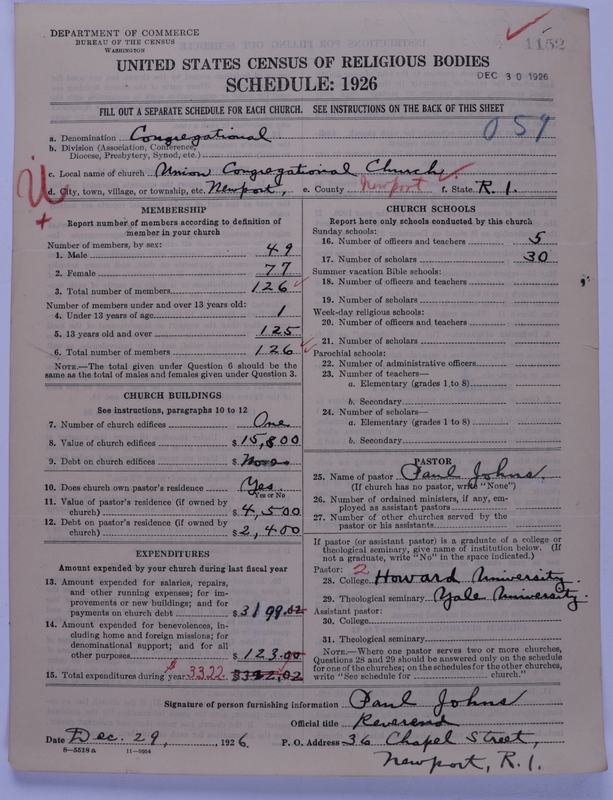 DEPARTMENT OF COMMERCE
BUREAU OF THE CENSUS
WASHINGTON
1152
UNITED STATES CENSUS OF RELIGIOUS BODIES
SCHEDULE: 1926
DEC 30 1926
FILL OUT A SEPARATE SCHEDULE FOR EACH CHURCH. SEE INSTRUCTIONS ON THE BACK OF THIS SHEET
a. Denomination Congregational
059
b. Division (Association, Conference,
Diocese, Presbytery, Synod, etc.)
c. Local name of church Union Congregational Church
d. City, town, village, or township, etc. Newport, e. County Newport f. State R. I.
MEMBERSHIP
Report number of members according to definition of
member in your church
Number of members, by sex:
1. Male 49
2. Female 77
3. Total number of members 126
Number of members under and over 13 years old:
4. Under 13 years of age 1
5. 13 years old and over 125
6. Total number of members 126
NOTE.—The total given under Question 6 should be the
same as the total of males and females given under Question 3.
CHURCH BUILDINGS
See instructions, paragraphs 10 to 12
7. Number of church edifices One
8. Value of church edifices $15,800
9. Debt on church edifices $ None
10. Does church own pastor's residence Yes
Yes or No
11. Value of pastor's residence (if owned by
church) $4,500
12. Debt on pastor's residence (if owned by
church) $2,400
EXPENDITURES
Amount expended by your church during last fiscal year
13. Amount expended for salaries, repairs,
and other running expenses; for im-
provements or new buildings; and for
payments on church debt $3199.02
14. Amount expended for benevolences, in-
cluding home and foreign missions; for
denominational support; and for all
other purposes $123.00
15. Total expenditures during year $3322. $3322.02
CHURCH SCHOOLS
Report here only schools conducted by this church
Sunday schools:
16. Number of officers and teachers 5
17. Number of scholars 30
Summer vacation Bible schools:
18. Number of officers and teachers
19. Number of scholars
Week-day religious schools:
20. Number of officers and teachers
21. Number of scholars
Parochial schools:
22. Number of administrative officers
23. Number of teachers—
a. Elementary (grades 1 to 8)
b. Secondary
24. Number of scholars—
a. Elementary (grades 1 to 8)
b. Secondary
PASTOR
25. Name of pastor Paul Johns.
(If church has no pastor, write "None")
26. Number of ordained ministers, if any, em-
ployed as assistant pastors
27. Number of other churches served by the
pastor or his assistants
If pastor (or assistant pastor) is a graduate of a college or
theological seminary, give name of institution below. (If
not a graduate, write "No" in the space indicated.)
Pastor: 2
28. College Howard University.
29. Theological seminary Yale University.
Assistant pastor:
30. College
31. Theological seminary
NOTE.—Where one pastor serves two or more churches,
Questions 28 and 29 should be answered only on the schedule
for one of the churches; on the schedules for the other churches,
write "See schedule for church."
Signature of person furnishing information Paul Johns
Official title Reverend
Date Dec. 29, 1926. P. O. Address 36 Chapel Street,
Newport, R. I.
8-5518a 11-9054